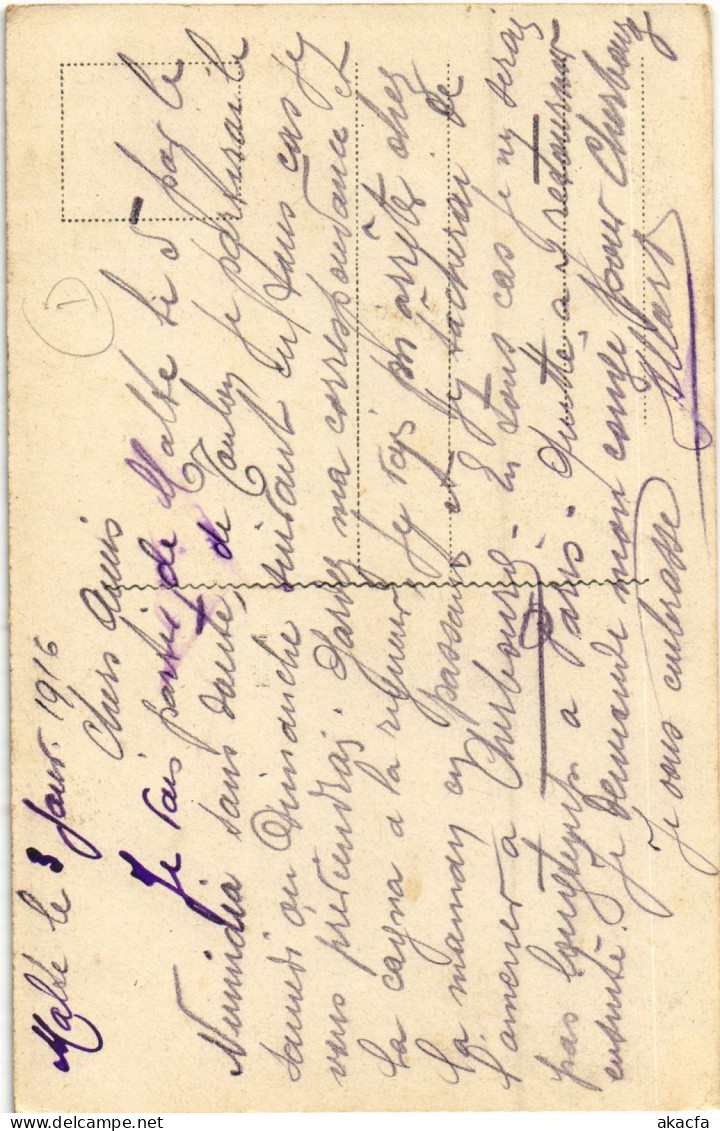 Malte le 3 Janv. 1916
Chers Amis
Je vais partir de Malte le 5 par le
Numidia sans doute, de Toulon je partirai le
samedi ou Dimanche suivant en tous cas je
vous préviendrai. Gardez ma correspondance à
la cagna à la rigueur. Je vais m'arrêter chez
la maman en passant et je tâcherai de
l'amener à Cherbourg. En tous cas je ny serai
pas longtemps à Paris. Quitte à y retourner
ensuite. Je demande mon congé pour Cherbourg
Je vous embrasse
1
akacfa
www.delcampe.net akacfa